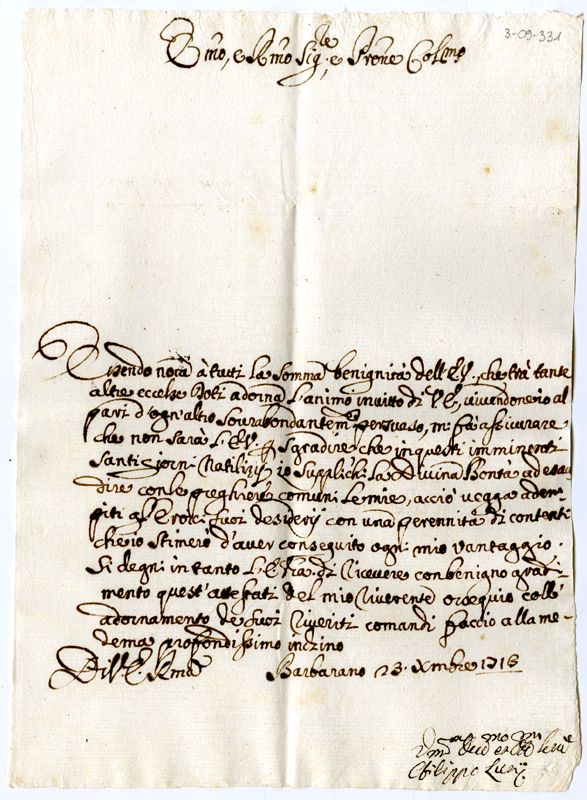 3-09-331
Emo, e Rmo Sig.re e Prone Colmo
Essendo nota à tutti la somma benignità dell'E.V., che trà tante
altre eccelse doti adorna l'animo invitto di V.E., vivendone io al
pari d'ogn'altro sourabondantemte persuaso, mi fà assicurare
che non sarà l'E.V. p sgradire che in questi imminenti
santi giorni Natilizij io supplichi la Divina Bontà ad esau
dire con le preghiere comuni le mie, acciò vegga adem-
piti gl'Eroici suoi desiderij con una perennità di contenti
che io stimerò d'aver conseguito ogni mio vantaggio.
Si degni in tanto l'E.Vra di ricevere con benigno gradi-
mento quest'attestati del mio riverente ossequio coll'
adornamento de suoi riveriti comandi faccio alla me-
dema profondissimo inchino
Di V.E. Rma Barbarano 23 Xmbre 1713
Filippo